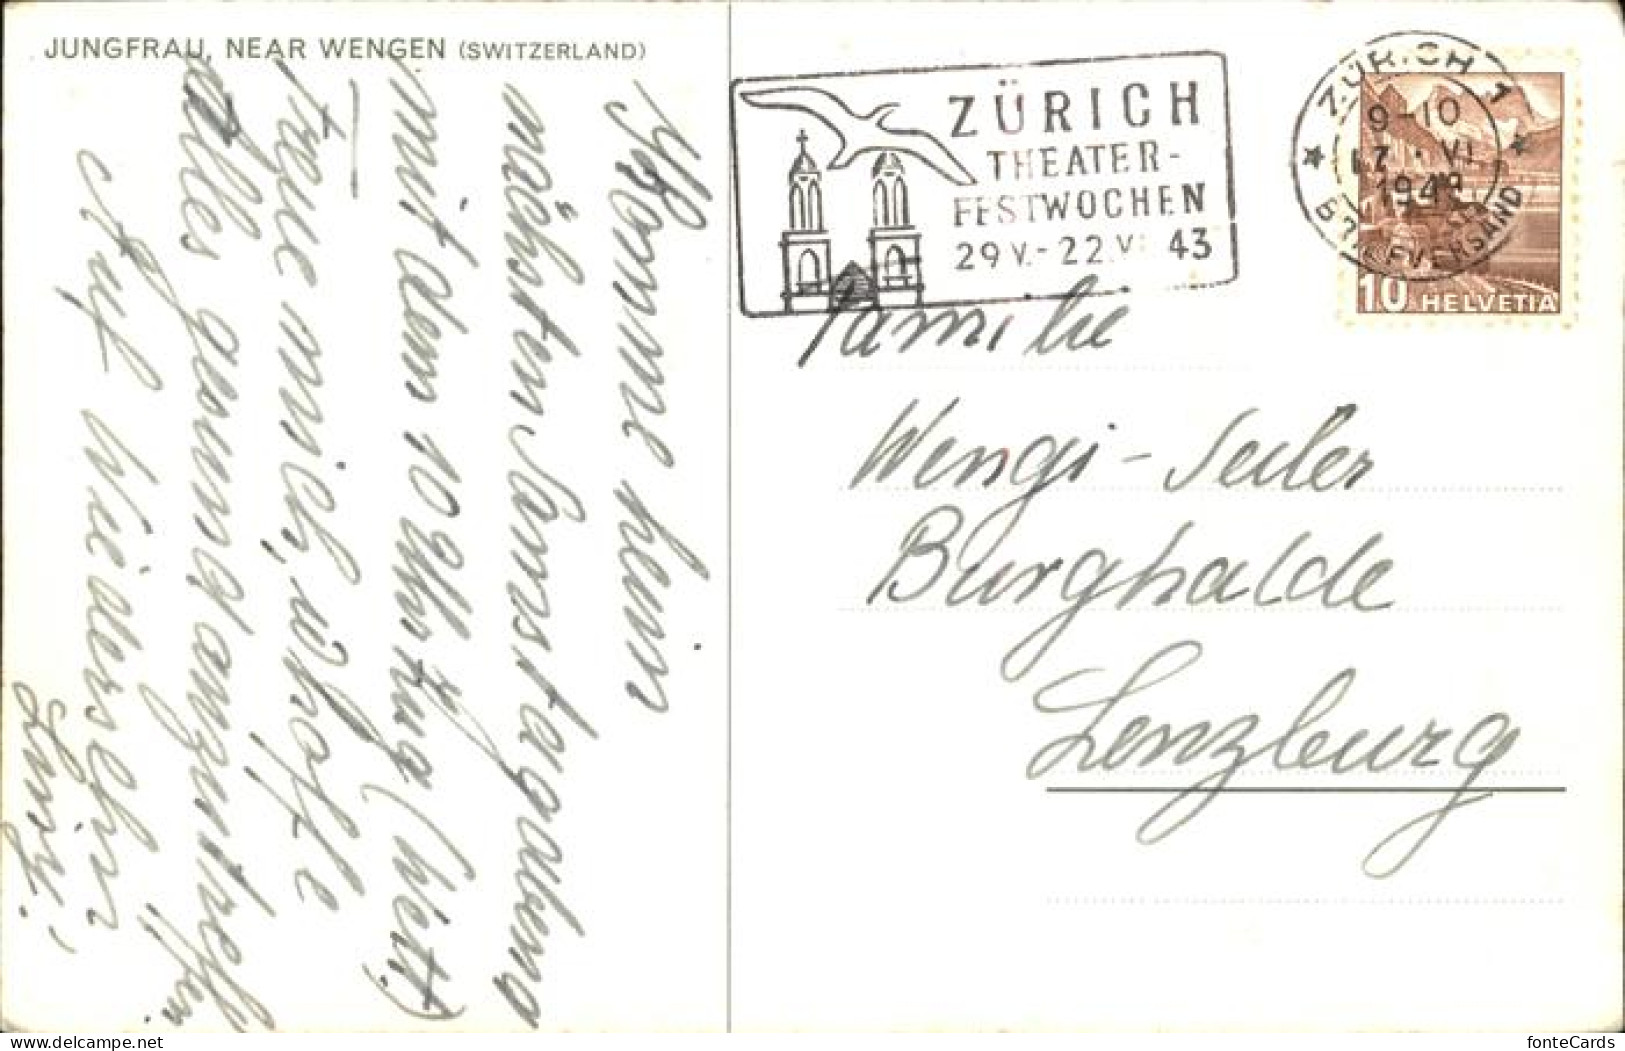 JUNGFRAU, NEAR WENGEN (SWITZERLAND)
Komme heim
nächsten Samstagabend
mit dem 10 Uhr Zug (Wett.)
freue mich, u. hoffe
alles gesund anzutreffen.
Auf Wiedersehn
ZÜRICH
THEATER-
FESTWOCHEN
29 V.-22.VI 43
ZÜRICH 1
9-10
VI
BRIEFVERSAND
10 HELVETIA
Familie
Wengi-Seiler
Burghalde
Lenzburg
delcampe.net
fonteCards